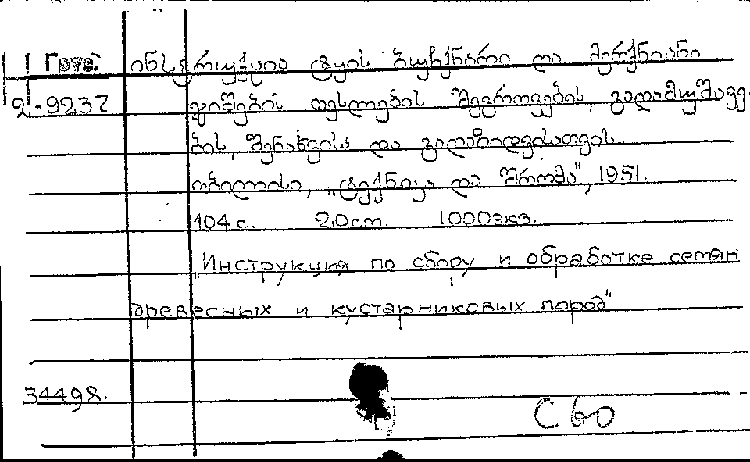 Груз. ინსტრუქცია ტყის ბუჩქნარი და მერქნიანი
2-9237 ჯიშების თესლების შეგროვების, გადამუშავე-
ბის, შენახვისა და გადაზიდვისათვის
თბილისი, „ტექნიკა და შრომა", 1951.
104 с. 20 см. 1000 экз.
Инструкция по сбору и обработке семян
древесных и кустарниковых пород"
34498.
С 60